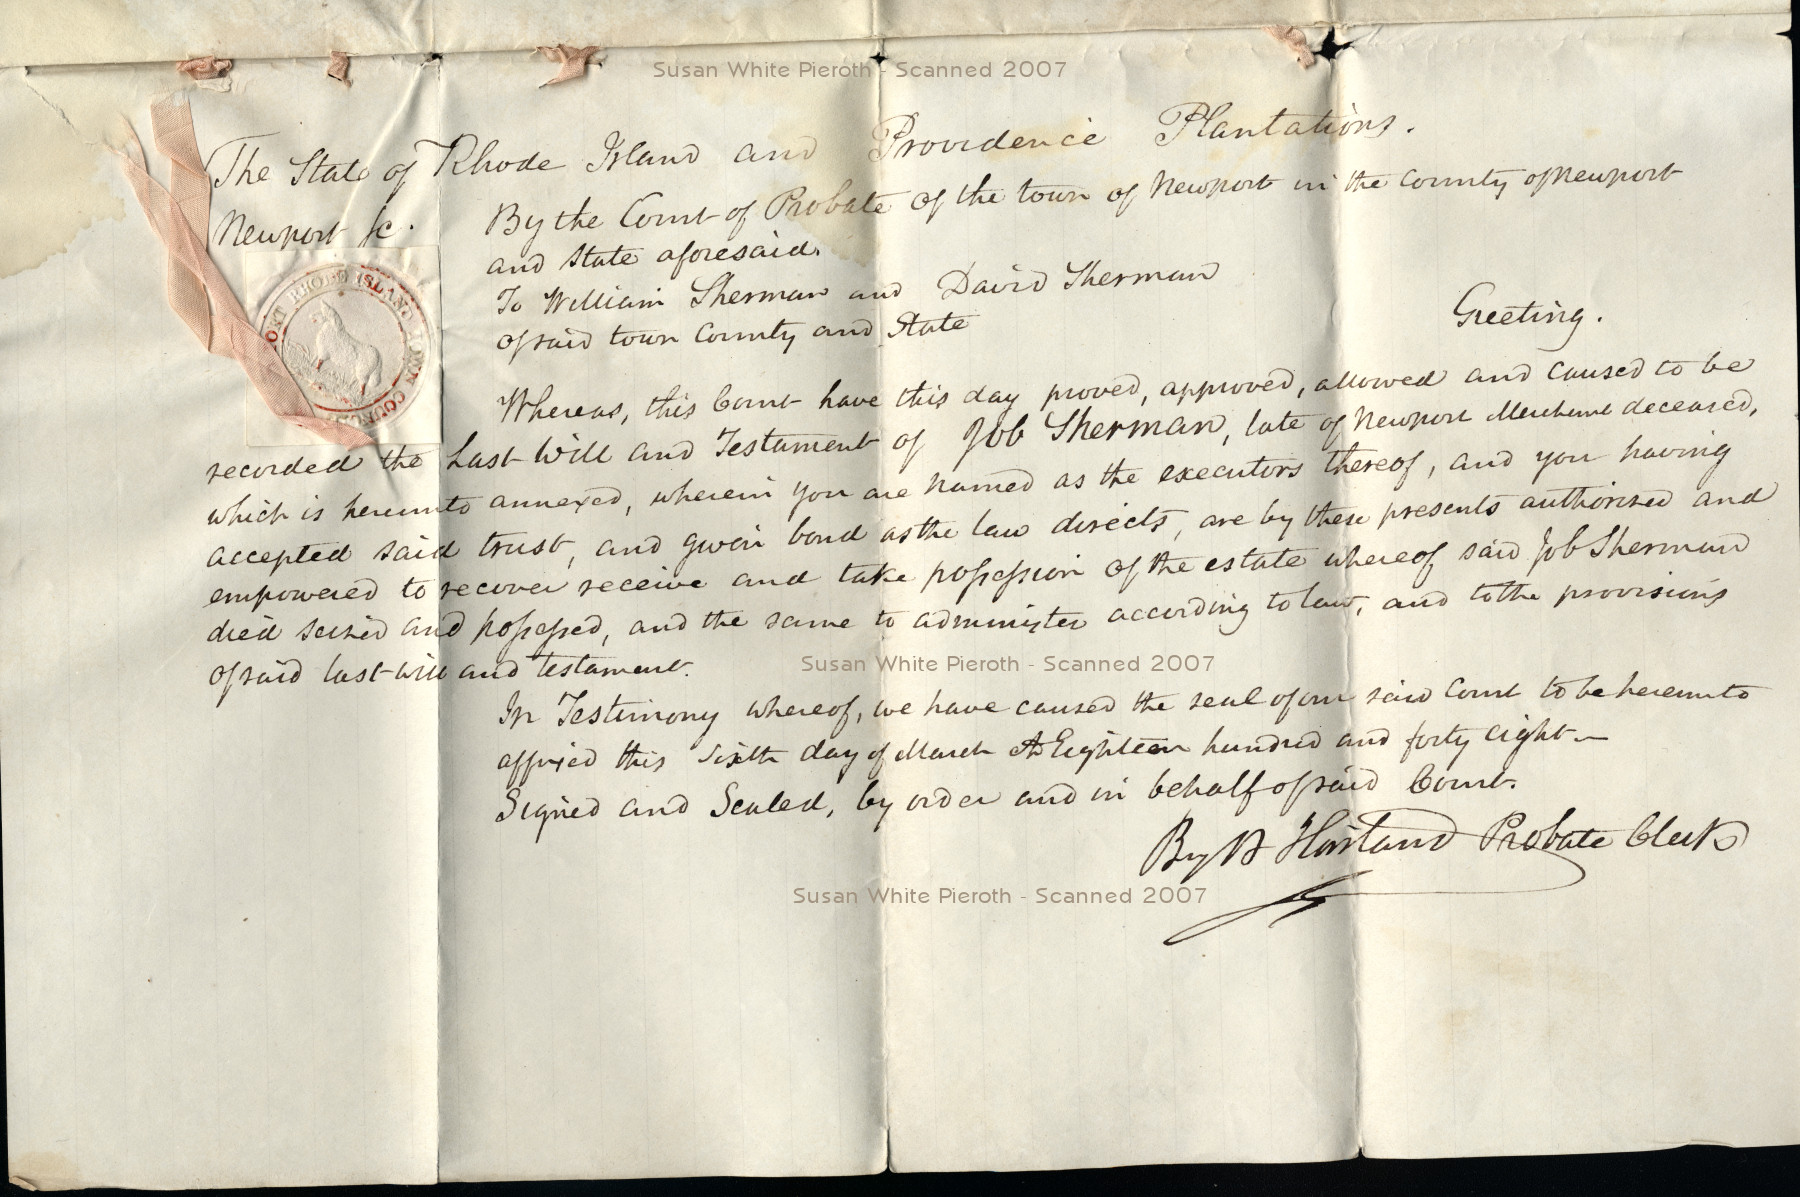 Susan White Pieroth - Scanned 2007
The State of Rhode Island and Providence Plantations.
Newport Sc.
By the Court of Probate of the town of Newport in the County of Newport
and State aforesaid.
To William Sherman and David Sherman
of said town County and State
Greeting.
RHODE ISLAND TOWN COUNCIL
Whereas, this Court have this day proved, approved, allowed and caused to be
recorded the Last Will and Testament of Job Sherman, late of Newport Merchant deceased,
which is hereunto annexed, wherein you are named as the executors thereof, and you having
accepted said trust, and given bond as the law directs, are by these presents authorized and
empowered to recover receive and take possession of the estate whereof said Job Sherman
died seized and possessed, and the same to administer according to law, and to the provisions
of said last will and testament.
Susan White Pieroth - Scanned 2007
In Testimony whereof, we have caused the seal of our said Court to be hereunto
affixed this Sixth day of March AD Eighteen hundred and forty eight
Signed and Sealed, by order and in behalf of said Court.
By B Howland Probate Clerk
Susan White Pieroth - Scanned 2007